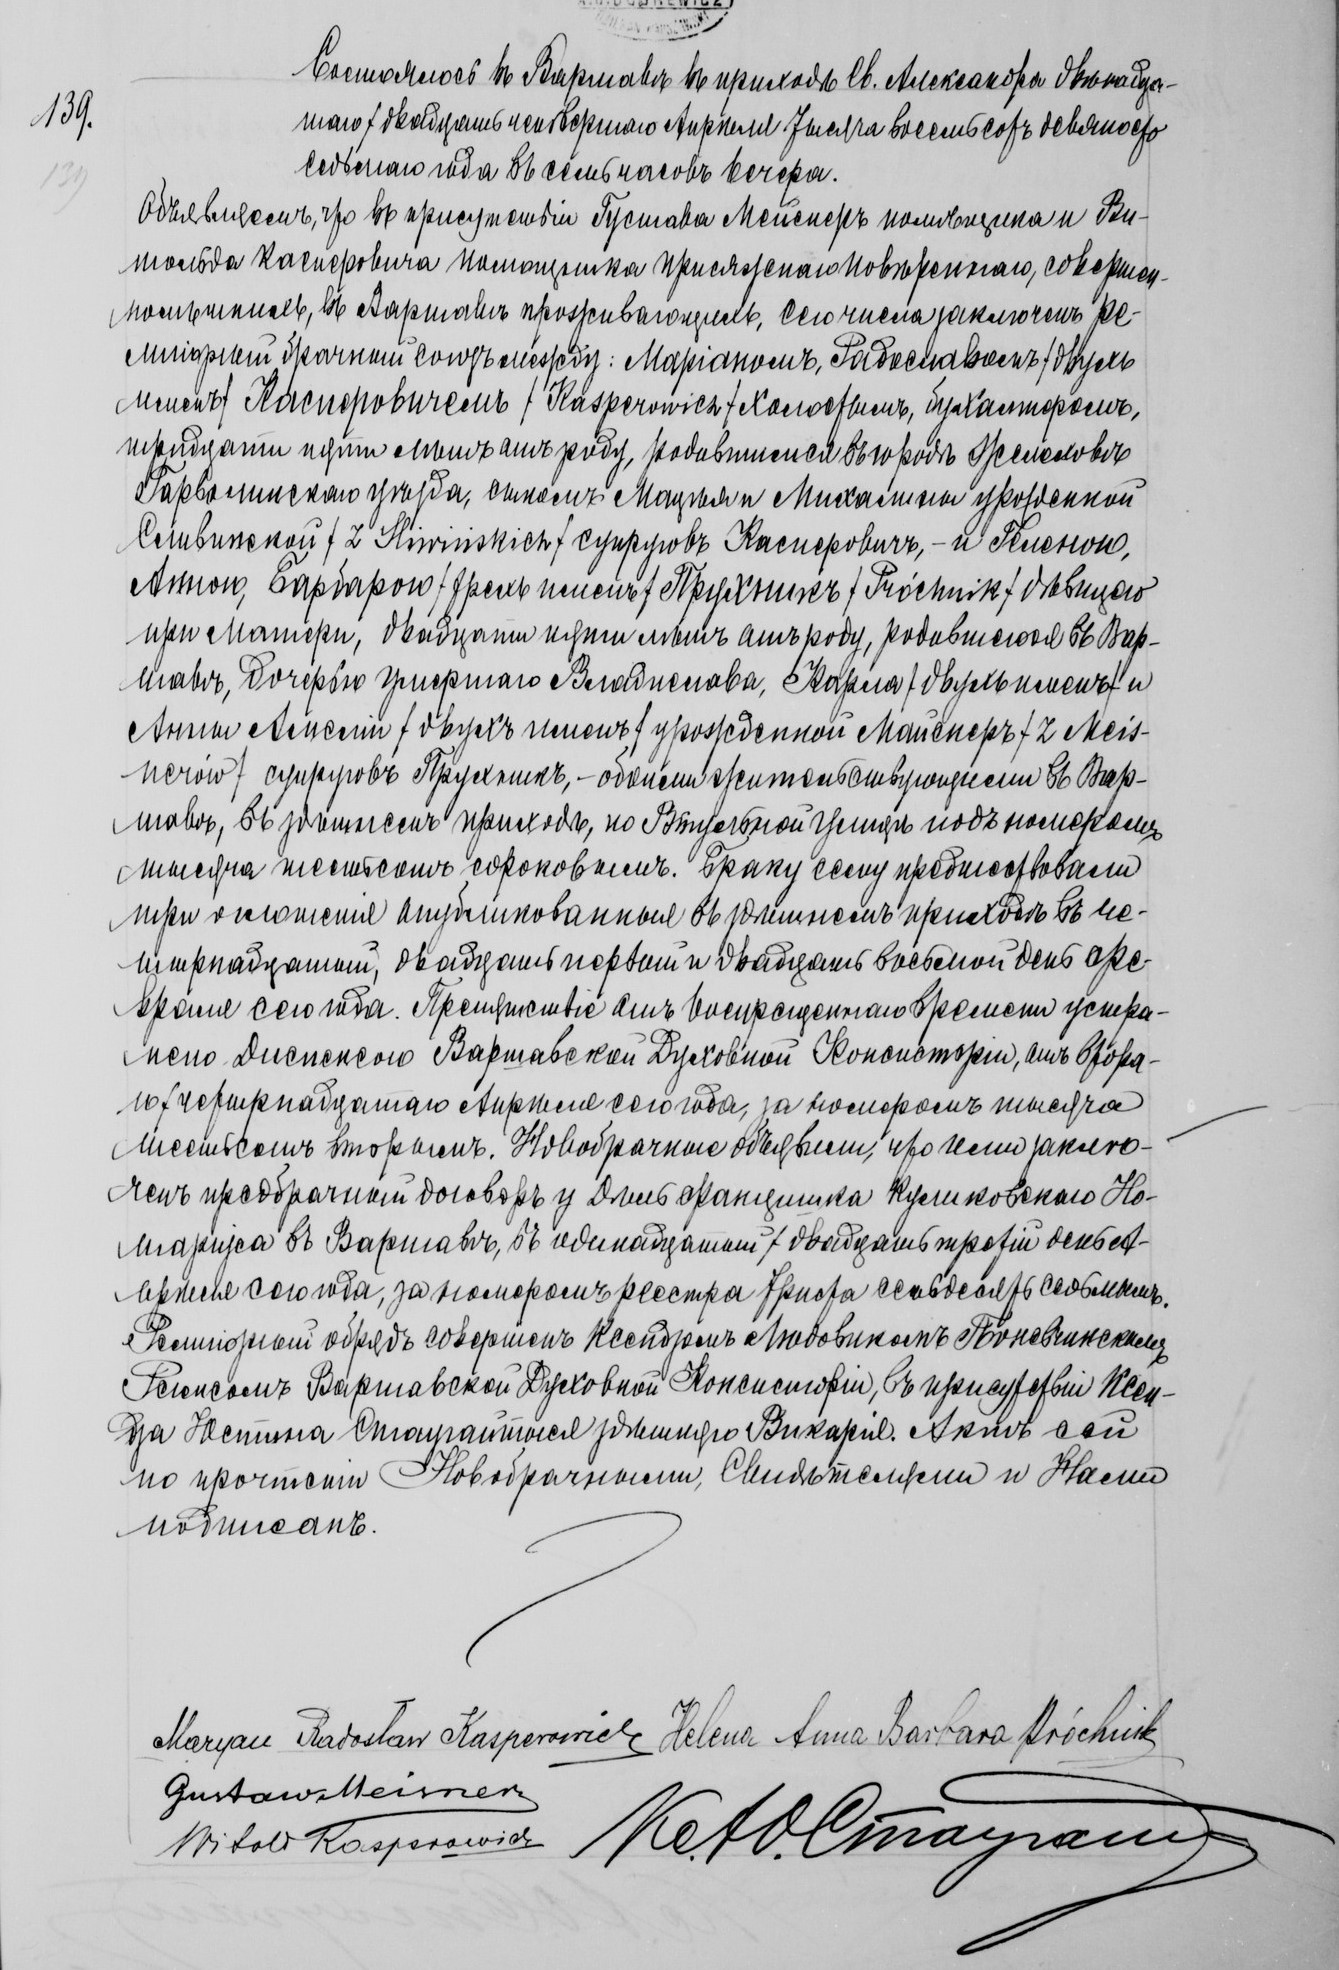 139.
139
Состоялось въ Варшавѣ въ приходѣ Св. Александра двѣнадца-
таго/двадцать четвертаго Апрѣля тысяча восемьсотъ девяносто
седьмаго года въ семь часовъ вечера.
Объявляемъ, что въ присутствіи Густава Мейснеръ помѣщика и Ви-
тольда Касперовича помощника присяжнаго повѣреннаго, совершен-
нолѣтнихъ, въ Варшавѣ проживающихъ, сего числа заключенъ ре-
лигіозный брачный союзъ между: Маріаномъ, Радославомъ/двухъ
именъ/ Касперовичемъ /Kasperowicz/ холостымъ, бухалтеромъ,
тридцати пяти лѣтъ отъ роду, родившимся въ городѣ Желеховѣ
Гарволинскаго уѣзда, сыномъ Мацѣя и Михалины урожденной
Сливинской /z Sliwińskich/ супруговъ Касперовичъ, – и Геленою,
Анною, Барбарою /трехъ именъ/ Прухникъ /Próchnik/ дѣвицею
при матери, двадцати пяти лѣтъ отъ роду, родившеюся въ Вар-
шавѣ, дочерью умершаго Владислава, Карла /двухъ именъ/ и
Анны Анелии /двухъ именъ/ урожденной Майснеръ /z Meis-
nerów/ супруговъ Прухникъ, – обоими жительствующими въ Вар-
шавѣ, въ здѣшнемъ приходѣ, по Вѣйской улицѣ подъ номеромъ
тысяча шестьсотъ сороковымъ. Браку сему предшествовали
три оглашенія опубликованныя въ здѣшнемъ приходѣ въ че-
тырнадцатый, двадцать первый и двадцать восьмой день Фе-
враля сего года. Препятствіе отъ воспрещеннаго времени устра-
нено Диспенсою Варшавской Духовной Консисторіи, отъ втора-
го/четырнадцатаго Апрѣля сего года, за номеромъ тысяча
шестьсотъ вторымъ. Новобрачные объявили, что ими заклю-
ченъ предбрачный договоръ у Францишка Куликовскаго Но-
таріуса въ Варшавѣ, въ одинадцатый/двадцать третій день А-
прѣля сего года, за номеромъ реестра триста семьдесятъ седьмымъ.
Религіозный обрядъ совершенъ Ксендзомъ Людовикомъ
Регенсомъ Варшавской Духовной Консисторіи, въ присутствіи Ксен-
дза Юстина здѣшняго Викарія. Актъ сей
по прочтеніи Новобрачными, Свидѣтелями и Нами
подписанъ.
Maryan Radosław Kasperowicz Helena Anna Barbara Próchnik
Gustaw Meisner
Witold Kasperowicz Кс. Ю.